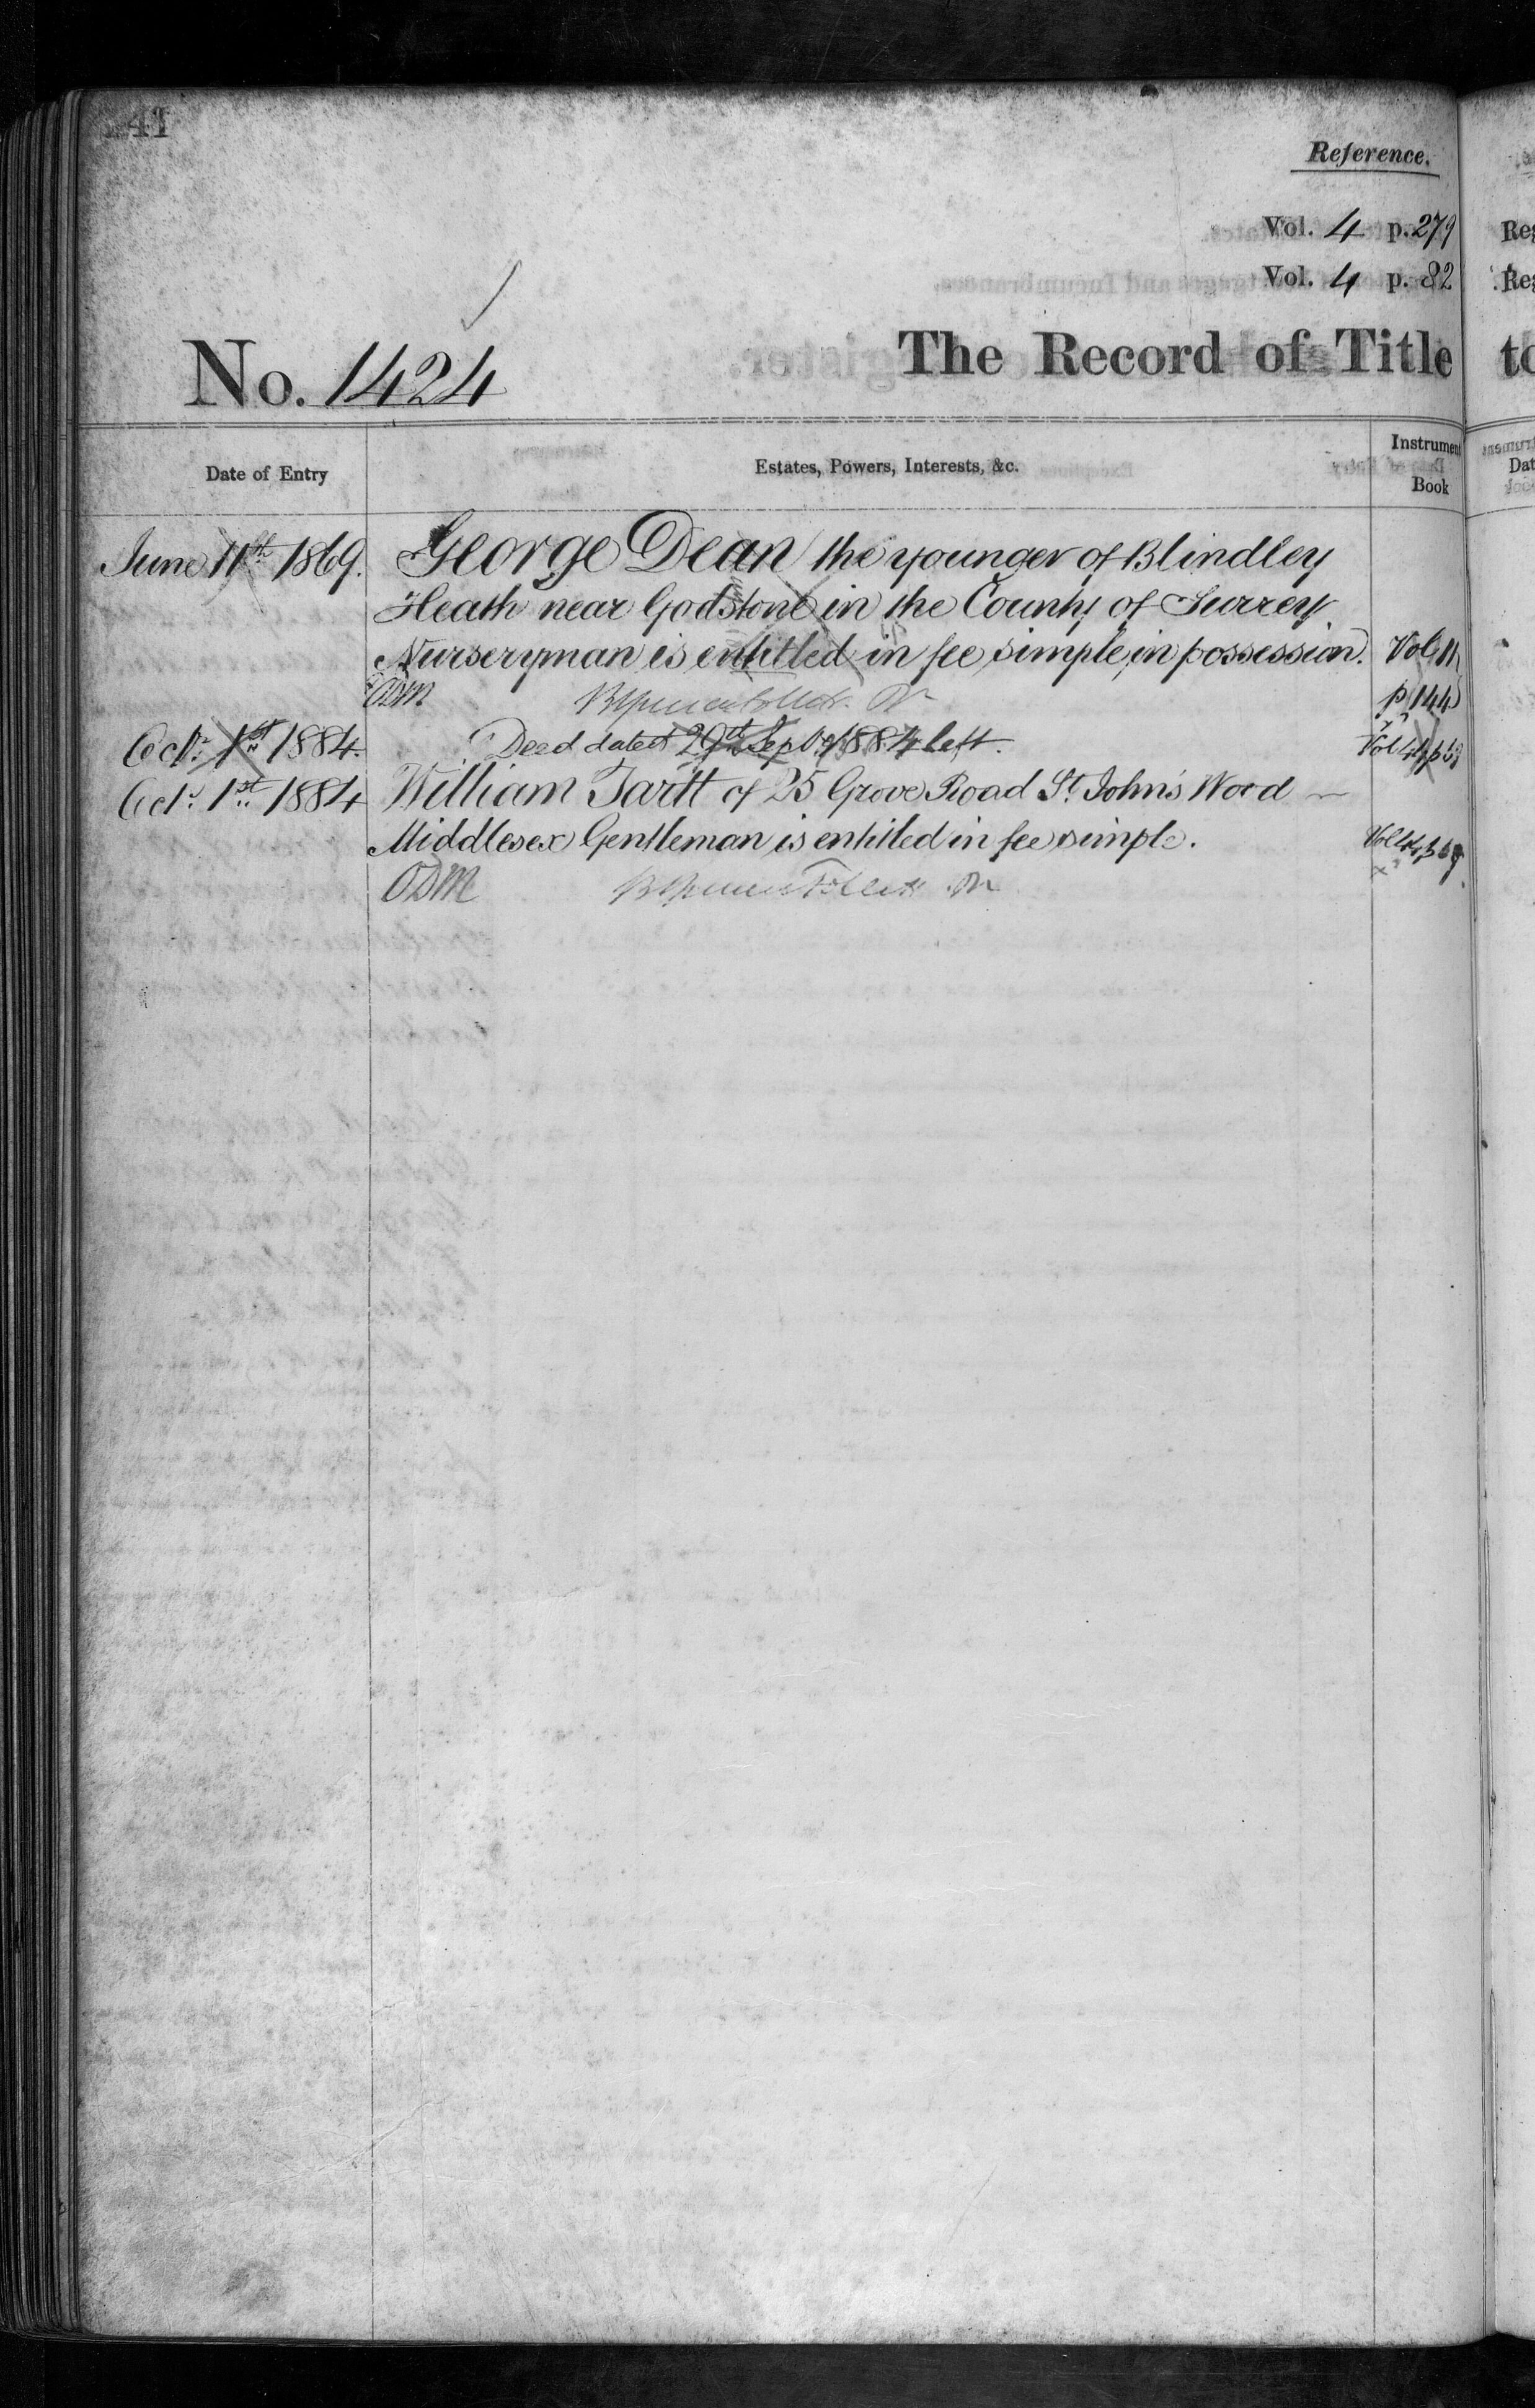 41
Reference.
Vol. 4 p. 279
Vol. 4 p. 82
No. 1424
The Record of Title
Date of Entry
Estates, Powers, Interests, &c.
Instrument
Book
June 11th 1869. George Dean the younger of Blindley
Heath near Godstone in the County of Surrey
Nurseryman is entitled in fee simple in possession. Vol 11
ODM p 144
Octr. 1st 1884. Deed dated 29th Sept 1884 left.
Octr. 1st 1884 William Tartt of 25 Grove Road St. John's Wood
Middlesex Gentleman is entitled in fee simple.
ODM